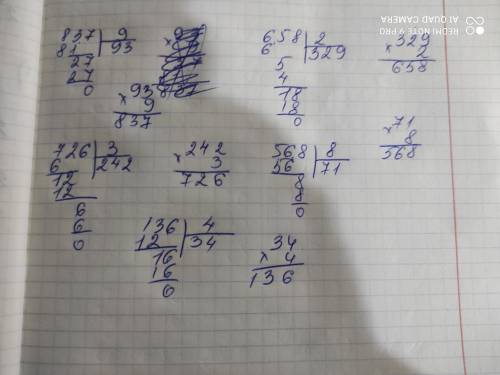 837 | 9
81 | 93
27
27
0
93
× 9
837
658 | 2
6 | 329
5
4
18
18
0
329
× 2
658
726 | 3
6 | 242
12
12
6
6
0
242
× 3
726
568 | 8
56 | 71
8
8
0
71
× 8
568
136 | 4
12 | 34
16
16
0
34
× 4
136
REDMI NOTE 9 PRO
AI QUAD CAMERA